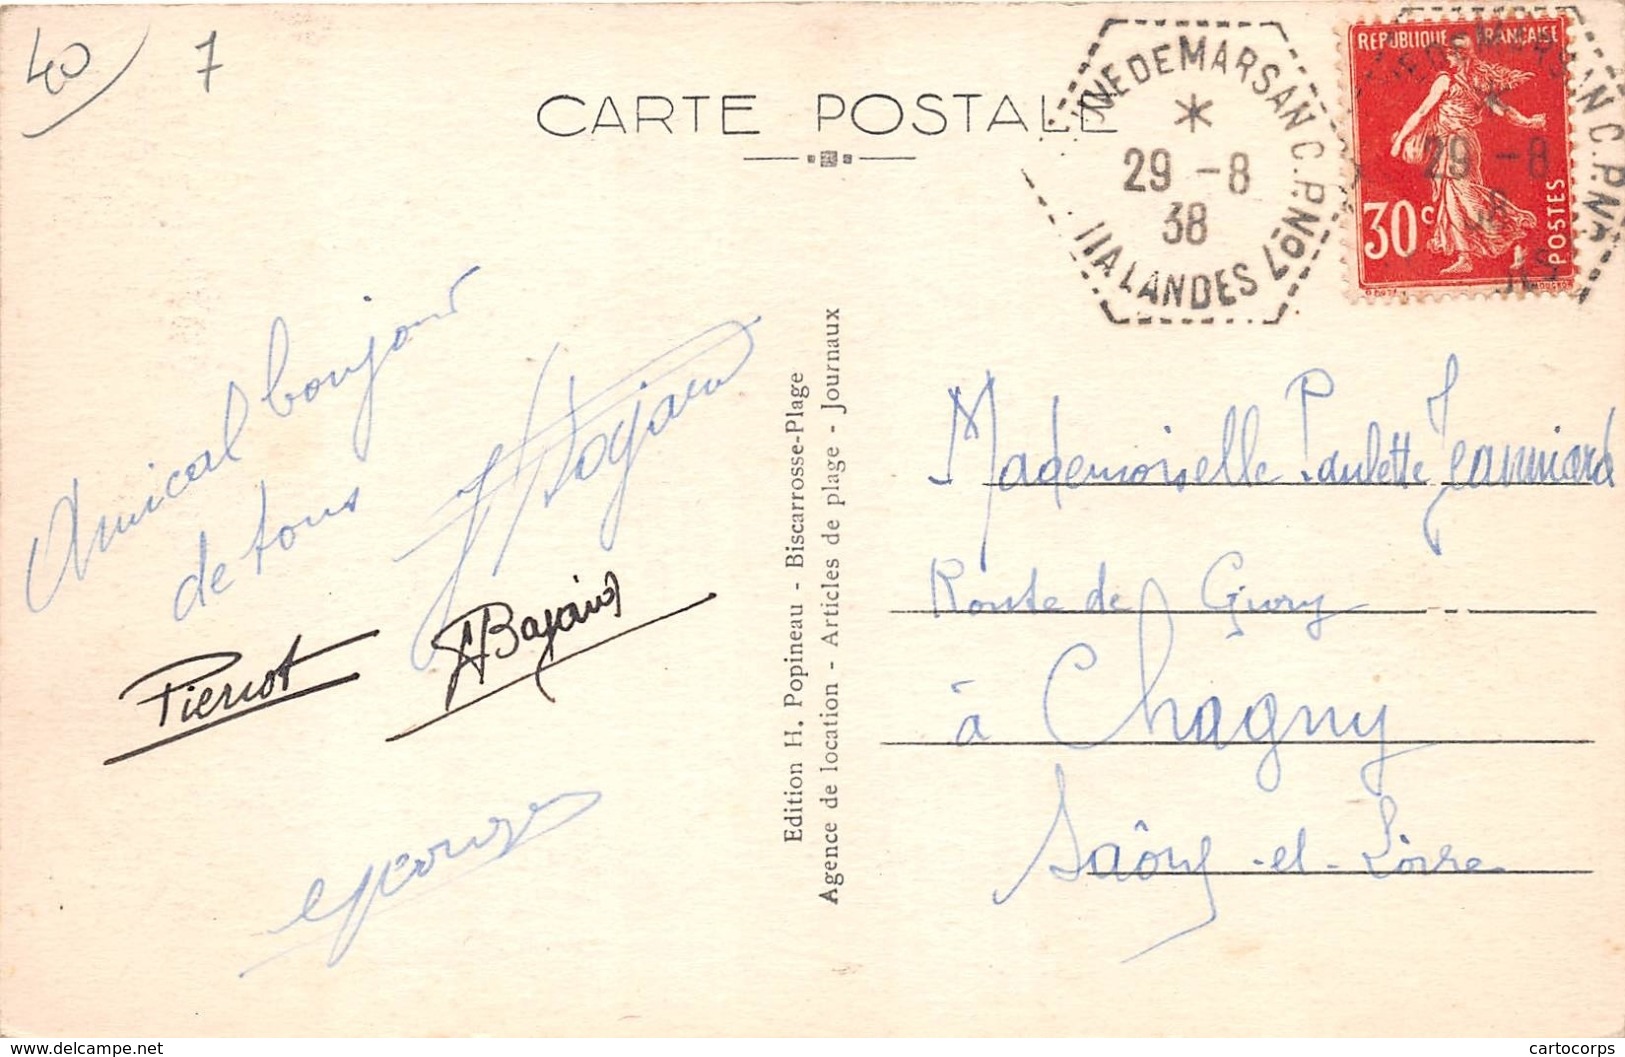 40 7
CARTE POSTALE
MEDEMARSAN C.P.NO7
*
29 -8
38
11A LANDES
REPUBLIQUE FRANÇAISE
29 -8
30c
POSTES
Amical bonjour
de tous
Pierrot
Edition H. Popineau - Biscarrosse-Plage
Agence de location - Articles de plage - Journaux
Mademoiselle Paulette Jeanniard
Route de Givry
à Chagny
Saône-et-Loire
www.delcampe.net
cartocorps